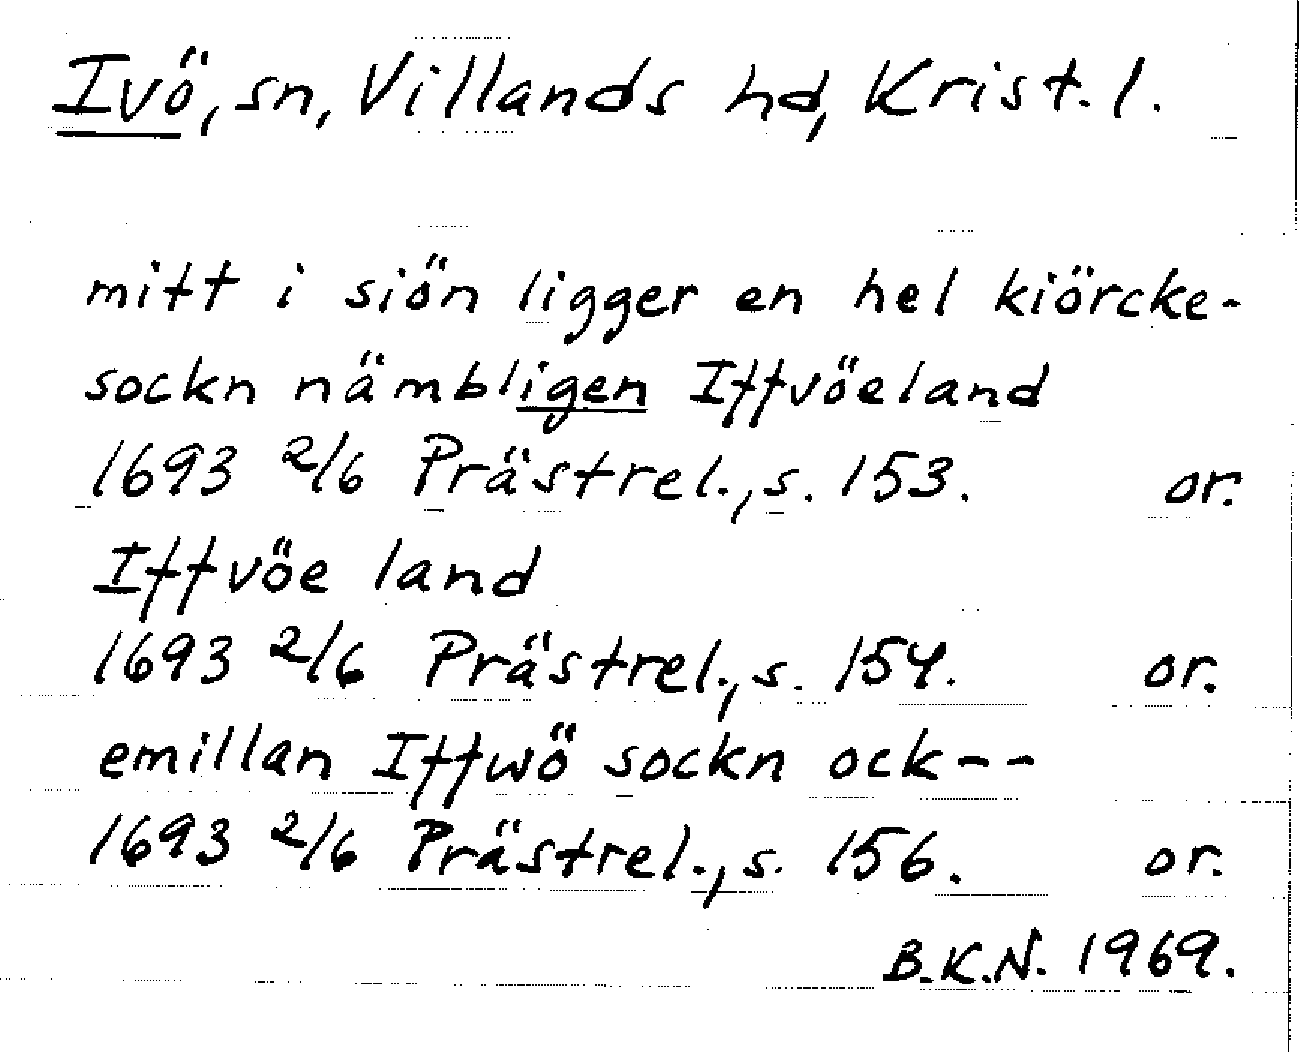 Ivö, sn, Villands hd, Krist. l.
mitt i siön ligger en hel kiörcke-
sockn nämbligen Iffvöeland
1693 2/6 Prästrel., s. 153. or.
Iffvöe land
1693 2/6 Prästrel., s. 154. or.
emillan Iffwö sockn ock--
1693 2/6 Prästrel., s. 156. or.
B.K.N. 1969.